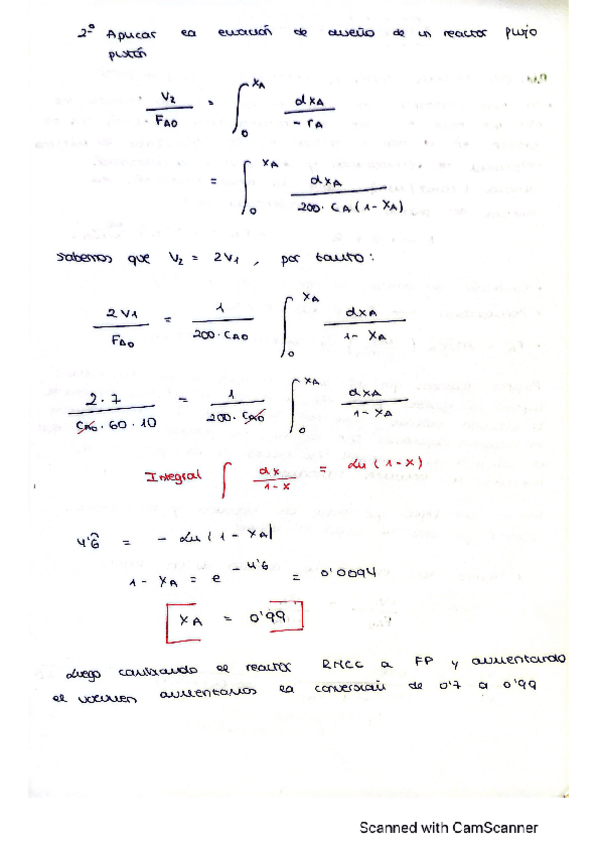 2º Aplicar la ecuación de diseño de un reactor flujo
pistón
V2 / FA0 = ∫0^XA dXA / - rA
= ∫0^XA dXA / 200· CA (1 - XA)
Sabemos que V2 = 2V1 , por tanto :
2V1 / FA0 = 1 / 200· CA0 ∫0^XA dXA / 1- XA
2·7 / CA0·60·10 = 1 / 200· CA0 ∫0^XA dXA / 1-XA
Integral ∫ dx / 1-x = Ln (1-x)
4'6̂ = - Ln (1- XA)
1- XA = e^-4'6 = 0'0094
XA = 0'99
Luego cambiando el reactor RMCC a FP y aumentando
el volumen aumentamos la conversión de 0'7 a 0'99
Scanned with CamScanner